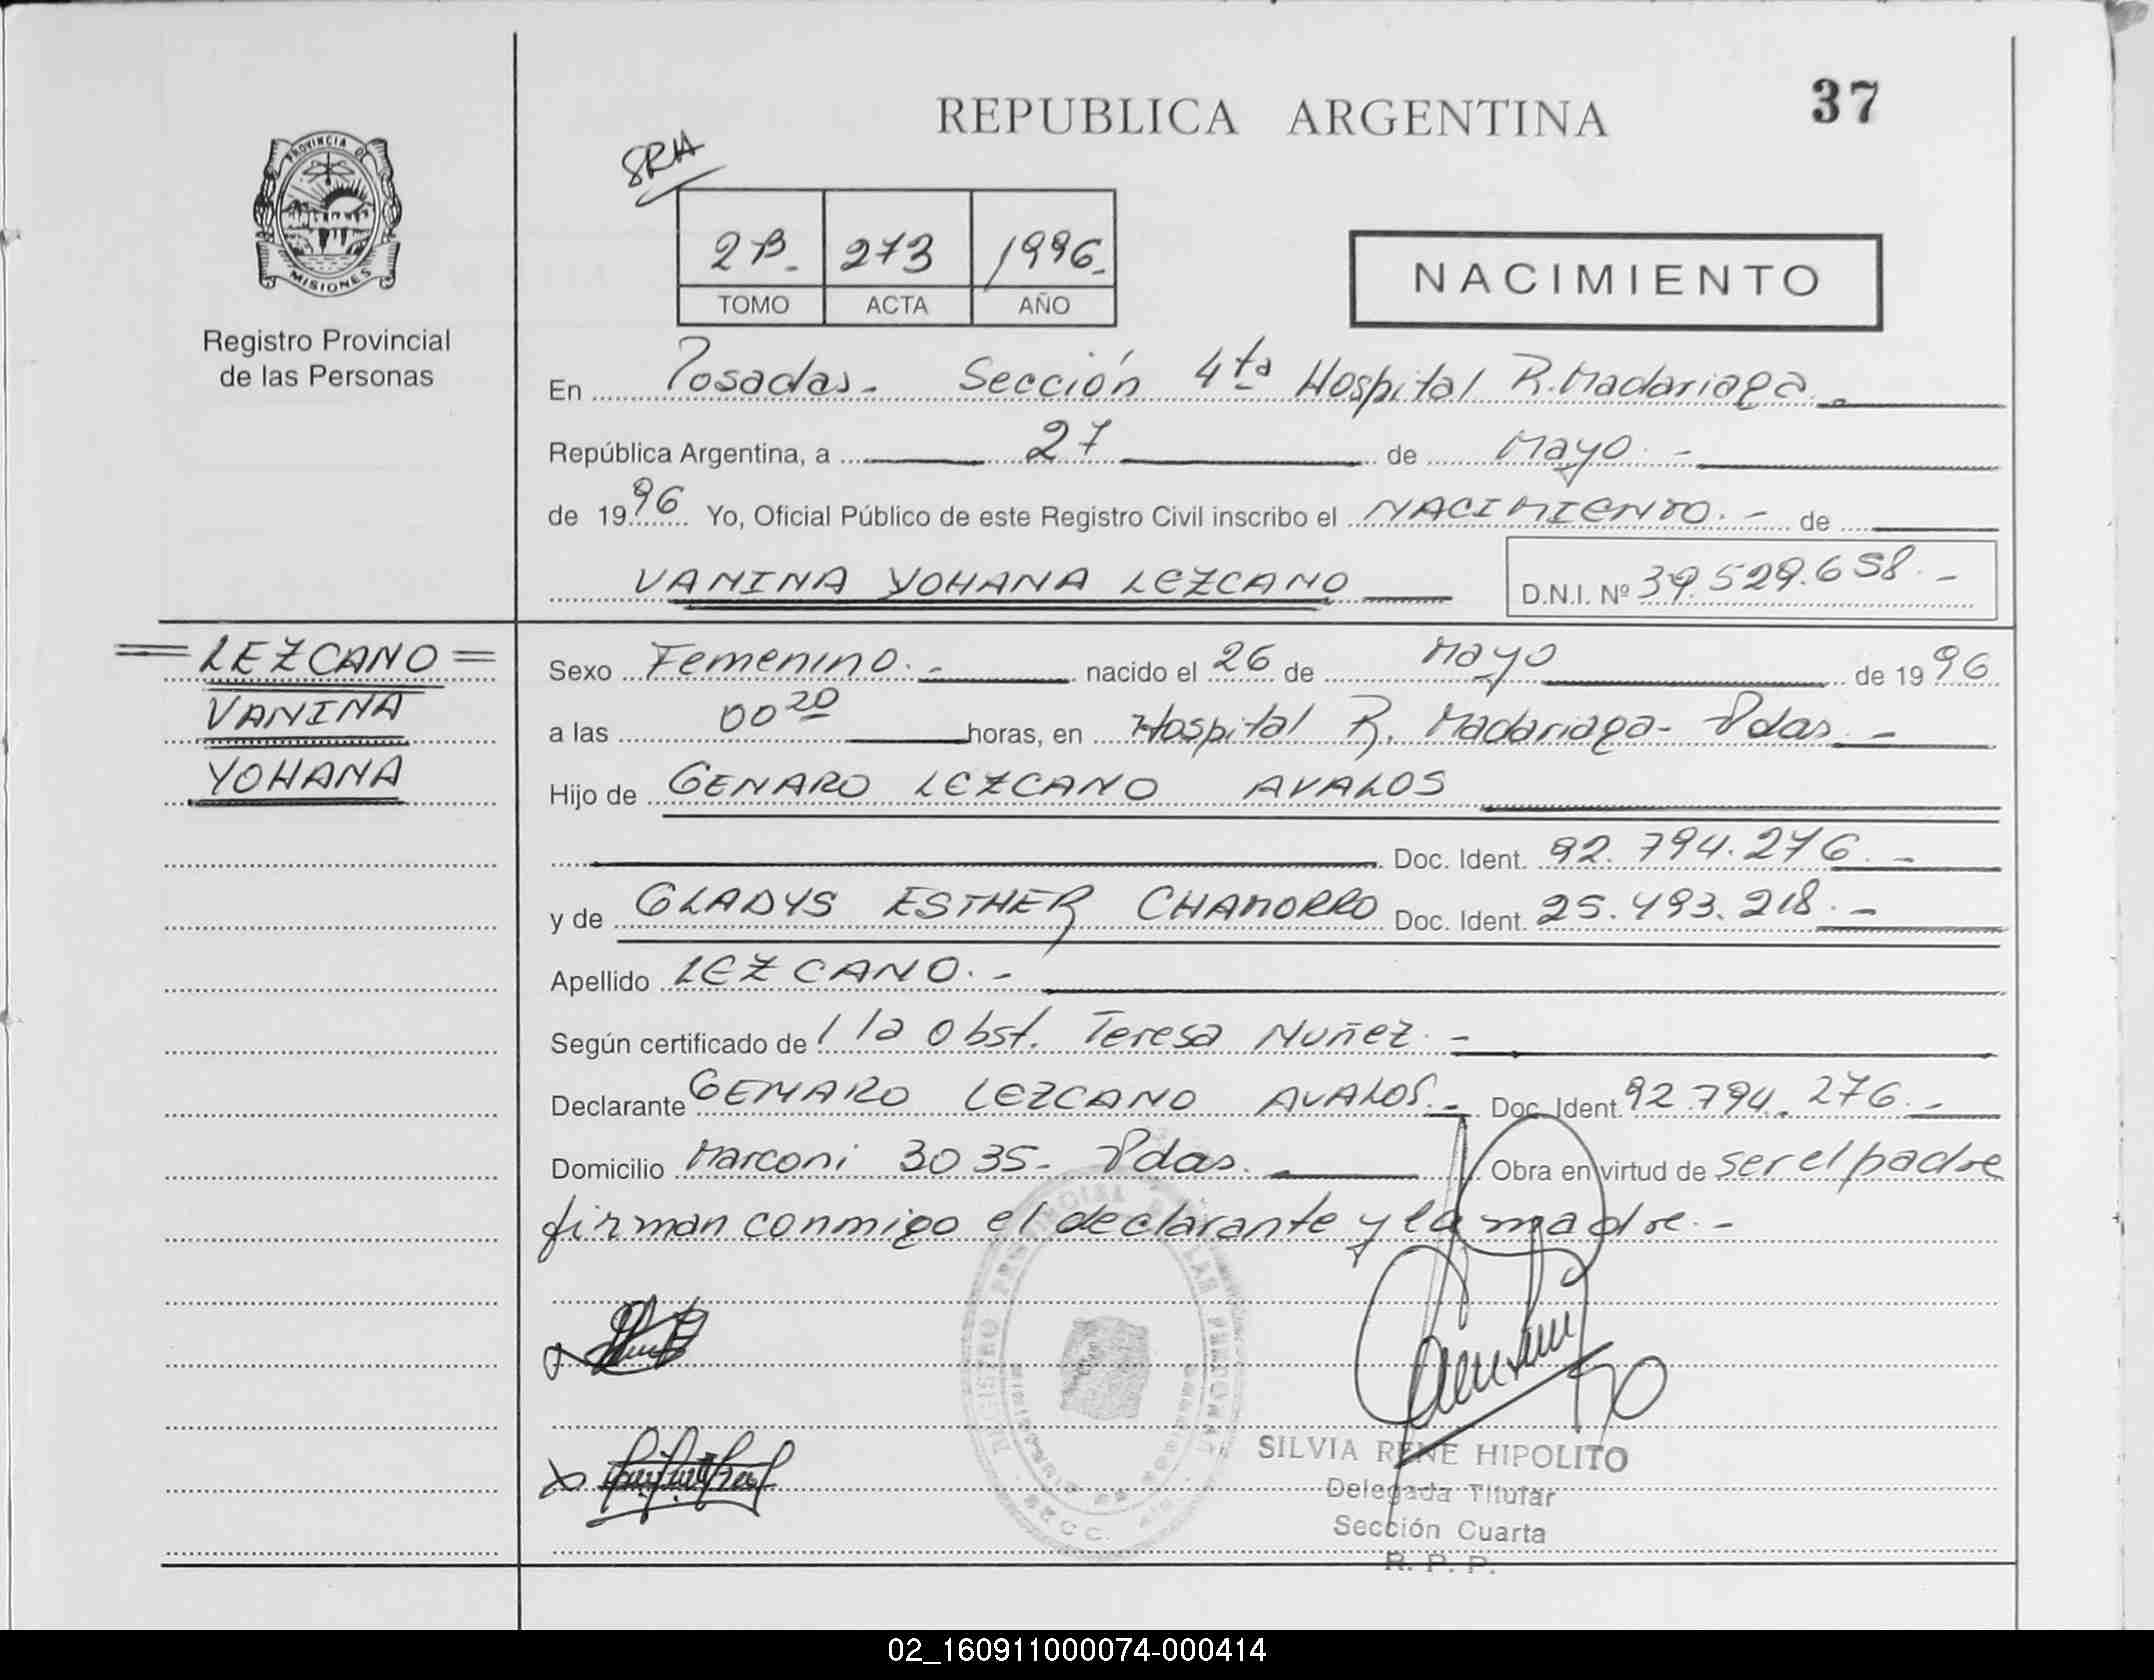 REPUBLICA ARGENTINA
37
SRA
2B. 273 1996.
TOMO ACTA AÑO
NACIMIENTO
PROVINCIA DE
MISIONES
Registro Provincial
de las Personas
En Posadas. Sección 4ta Hospital R. Madariaga.
República Argentina, a 27 de Mayo. -
de 1996 Yo, Oficial Público de este Registro Civil inscribo el NACIMIENTO. - de
VANINA YOHANA LEZCANO
D.N.I. Nº 39.529.658. -
= LEZCANO =
VANINA
YOHANA
Sexo Femenino. - nacido el 26 de Mayo de 1996
a las 00 20 horas, en Hospital R. Madariaga - Pdas. -
Hijo de GENARO LEZCANO AVALOS
Doc. Ident. 92.794.276. -
y de GLADYS ESTHER CHAMORRO Doc. Ident. 25.493.218. -
Apellido LEZCANO. -
Según certificado de / la Obst. Teresa Nuñez. -
Declarante GENARO LEZCANO AVALOS. - Doc. Ident. 92.794.276. -
Domicilio Marconi 3035 - Pdas. Obra en virtud de ser el padre
firman conmigo el declarante y la madre. -
SILVIA RENE HIPOLITO
Delegada Titular
Sección Cuarta
R. P. P.
02_160911000074-000414